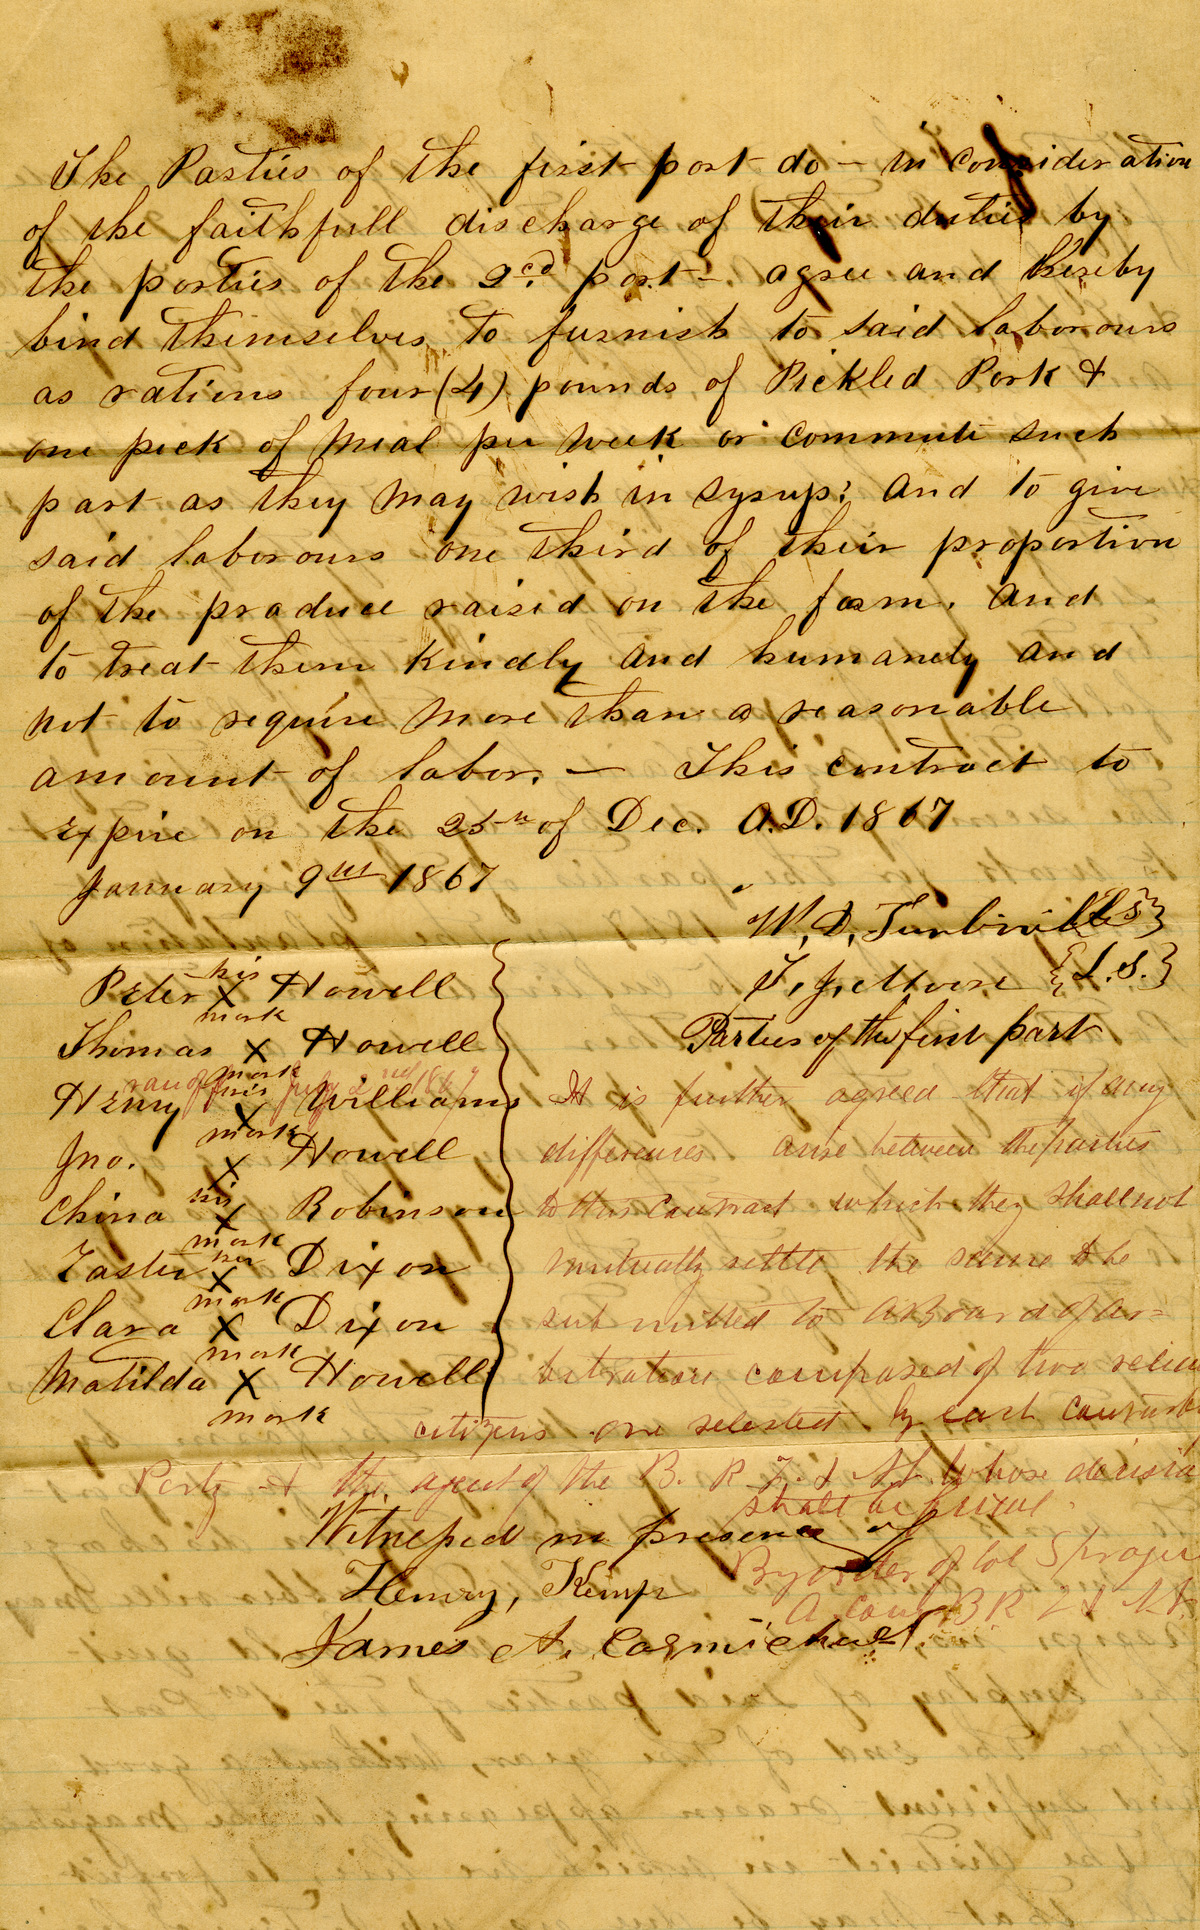 The Parties of the first part do – in consideration
of the faithfull discharge of their duties by
the parties of the 2cd. part – agree and thereby
bind themselves to furnish to said labourours
as rations four (4) pounds of Pickled Pork &
one peck of Meal per week or commute such
part as they may wish in syrup; and to give
said labourours one third of their proportion
of the produce raised on the farm. And
to treat them kindly and humanely and
not to require more than a reasonable
amount of labor. – This contract to
Expire on the 25th of Dec. A.D. 1867
January 9th 1867
W. D. Turbiville {L.S.}
T. J. Moore {L.S.}
Parties of the first part
Peter his X mark Howell
Thomas X mark Howell
ran off July 2nd 1867
Henry his X mark Williams
Jno. X Howell
China his X mark Robinson
Easter her X mark Dixon
Clara X mark Dixon
Matilda X mark Howell
It is further agreed that if any
differences arise between the parties
to this Contract which they shall not
mutually settle the same to be
submitted to a Board of ar=
bitration composed of two
citizens one selected by each
Party & the agent of the B. R. F. & A. L. whose decision
shall be final.
Witnessed in presence of
Henry, Kemp
James A. Carmichael
By order of Col Sprague
A Com B R F & A L